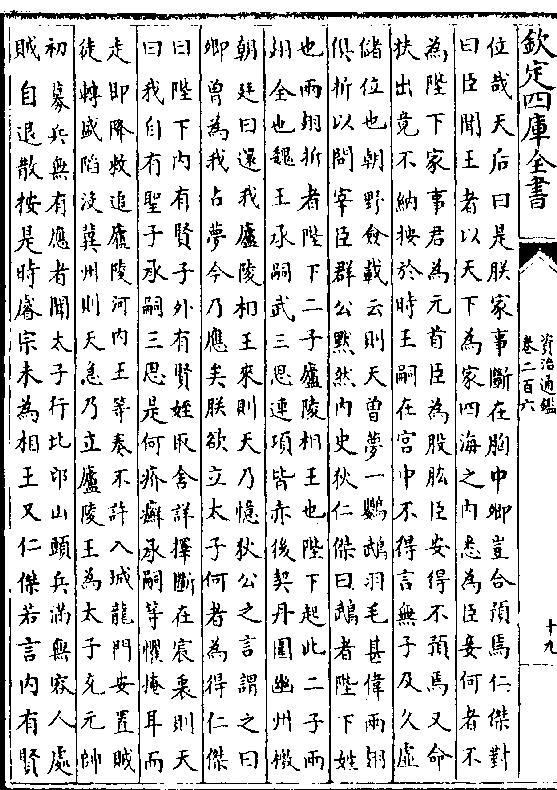 欽定四庫全書
資治通鑑
卷二百六
十九
位哉天后曰是朕家事斷在胸中卿豈合預焉仁傑對
曰臣聞王者以天下為家四海之内悉為臣妾何者不
為陛下家事君為元首臣為股肱臣安得不預焉又命
扶出竟不納按於時王嗣在宫中不得言無子及久虚
儲位也朝野僉載云則天曾夢一鸚鵡羽毛甚偉兩翅
俱折以問宰臣群公黙然内史狄仁傑曰鵡者陛下姓
也兩翅折者陛下二子廬陵相王也陛下起此二子兩
翅全也魏王承嗣武三思連項皆赤後契丹圍幽州檄
朝廷曰還我廬陵相王來則天乃憶狄公之言謂之曰
卿曾為我占夢今乃應矣朕欲立太子何者為得仁傑
曰陛下内有賢子外有賢姪取舍詳擇斷在宸衷則天
曰我自有聖子承嗣三思是何疥癬承嗣等懼掩耳而
走即降敕追廬陵河内王等奏不許入城龍門安置賊
徒轉盛陷没冀州則天急乃立廬陵王為太子充元帥
初募兵無有應者聞太子行北邙山頭兵滿無容人處
賊自退散按是時睿宗未為相王又仁傑若言内有賢